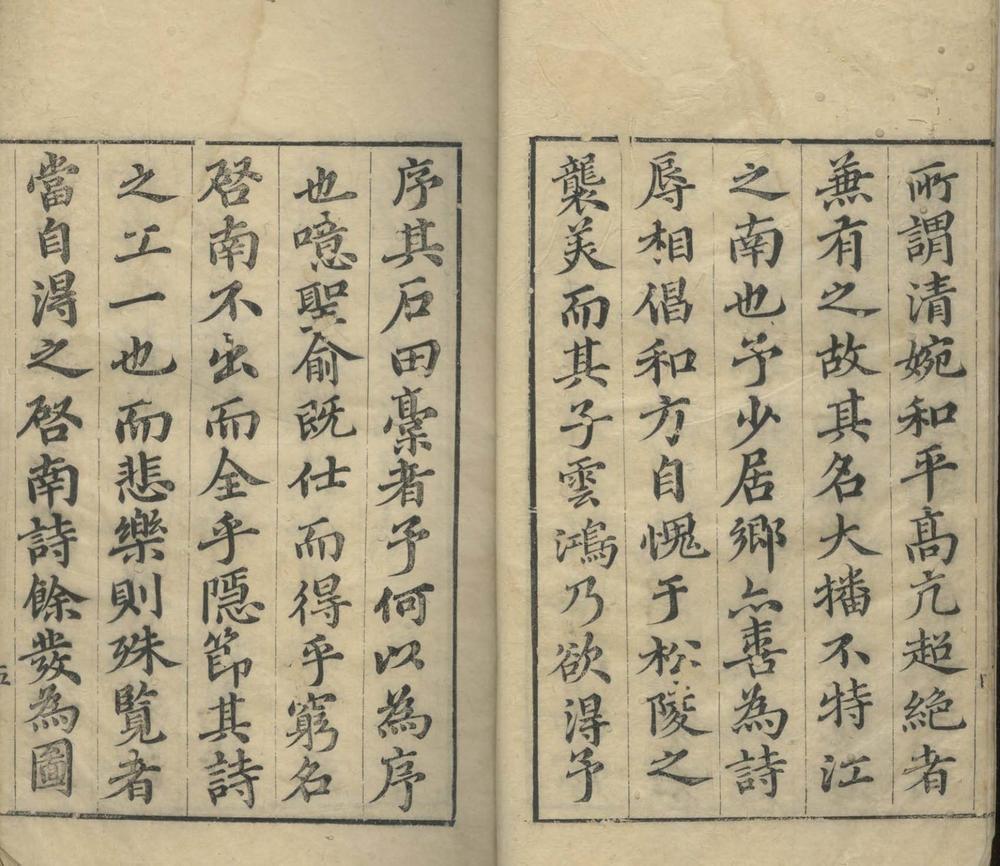 所謂清婉和平高亢超絶者
兼有之故其名大播不特江
之南也予少居鄉亦喜為詩
辱相倡和方自愧于松陵之
襲美而其子雲鴻乃欲得予
序其石田藁者予何以為序
也噫聖俞既仕而得乎窮名
啓南不出而全乎隱節其詩
之工一也而悲樂則殊覽者
當自得之啓南詩餘發為圖
五